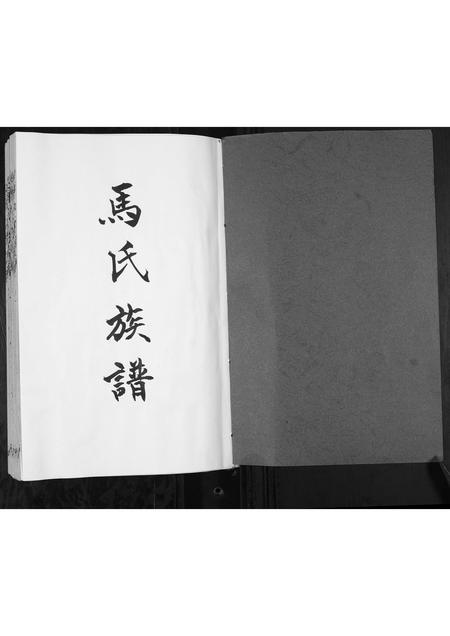 馬氏族譜